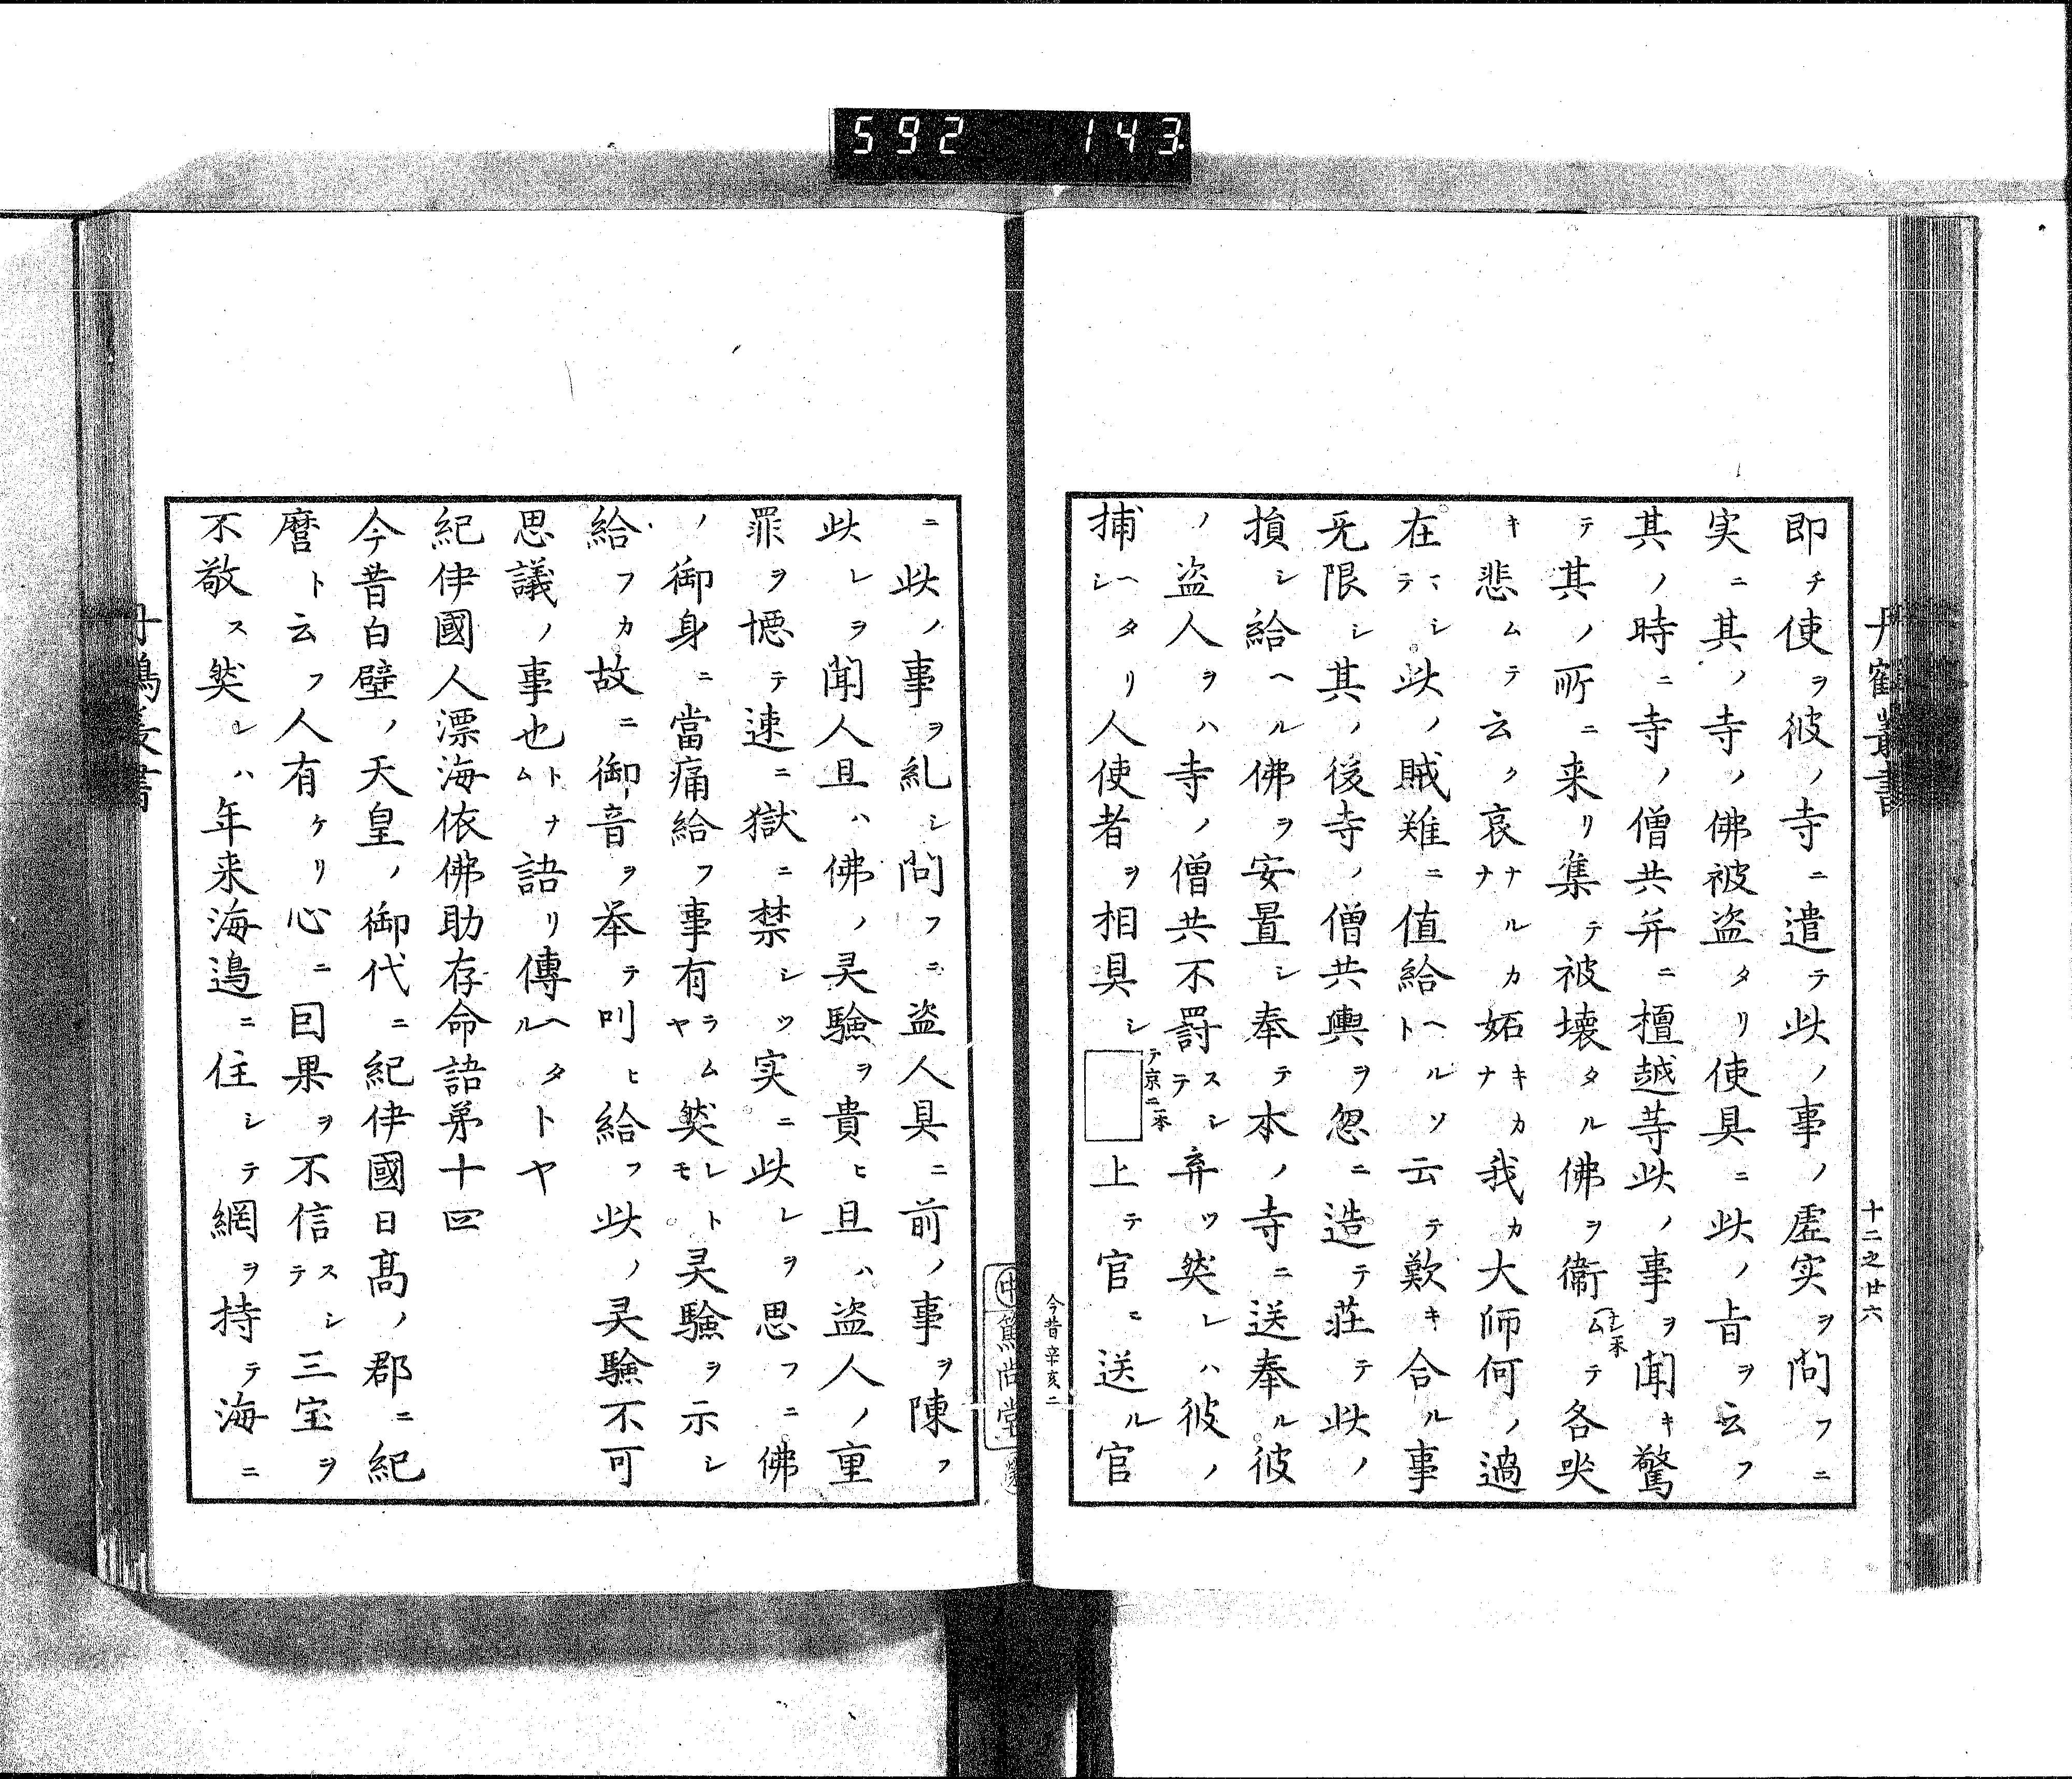 592 143
丹鶴叢書
十二之廿六
即チ使ヲ彼ノ寺ニ遣テ此ノ事ノ虚实ヲ問フニ
実ニ其ノ寺ノ佛被盗タリ使具ニ此ノ旨ヲ云フ
其ノ時ニ寺ノ僧共并ニ檀越等此ノ事ヲ聞キ驚
テ其ノ所ニ来リ集テ被壊タル佛ヲ衞ムテ各哭
キ悲ムテ云ク哀ナルカナ妬キカナ我カ大師何ノ過
在マシテ此ノ賊難ニ值給ヘルソト云テ歎キ合ル事
无限シ其ノ後寺ノ僧共輿ヲ忽ニ造テ莊テ此ノ
損シ給ヘル佛ヲ安置シ奉テ本ノ寺ニ送奉ル彼
ノ盗人ヲハ寺ノ僧共不罸スシテ弃ツ然レハ彼ノ
捕ヘタリシ人使者ヲ相具シテ京ニ一本□上テ官ニ送ル官
今昔辛亥二
ニ此ノ事ヲ糺シ問フニ盗人具ニ前ノ事ヲ陳フ
此レヲ聞人且ハ佛ノ灵驗ヲ貴ヒ且ハ盗人ノ重
罪ヲ憾テ速ニ獄ニ禁シツ実ニ此レヲ思フニ佛
ノ御身ニ當痛給フ事有ラムヤ然レトモ灵驗ヲ示シ
給フカ故ニ御音ヲ举テ叫ヒ給フ此ノ灵驗不可
思議ノ事也トナム語リ傳ヘタルトヤ
紀伊國人漂海依佛助存命語弟十四
今昔白壁ノ天皇ノ御代ニ紀伊國日髙ノ郡ニ紀
麿ト云フ人有ケリ心ニ因果ヲ不信スシテ三宝ヲ
不敬ス然レハ年来海邉ニ住シテ網ヲ持テ海ニ